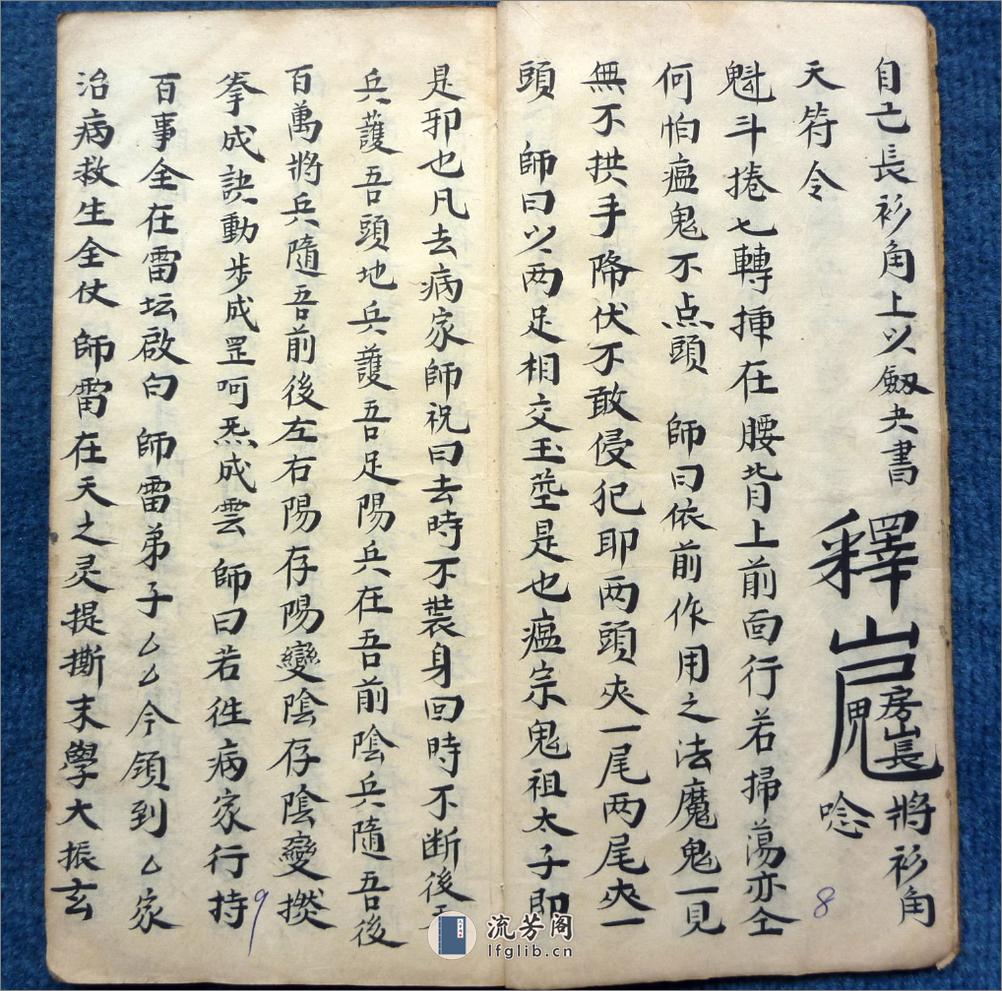 自己長衫角上以劔尖書 釋 將衫角
房山長
天符令 唸
魁斗捲七轉揷在腰背上前面行若掃蕩亦仝
何怕瘟鬼不点頭 師曰依前作用之法魔鬼一見
無不拱手降伏不敢侵犯耶两頭夾一尾两尾夾一
頭 師曰以两足相交玉茔是也瘟宗鬼祖太子即
是邪也凡去病家師祝曰去時不裝身回時不断後
兵護吾頭地兵護吾足陽兵在吾前陰兵隨吾後
百萬將兵隨吾前後左右陽存陽變陰存陰變撚
拳成訣動步成罡呵炁成雲 師曰若徃病家行持
百事全在雷坛啟白 師雷弟子厶厶今領到厶家
治病救生全仗 師雷在天之灵提撕末學大振玄
8
9
流芳阁
lfglib.cn